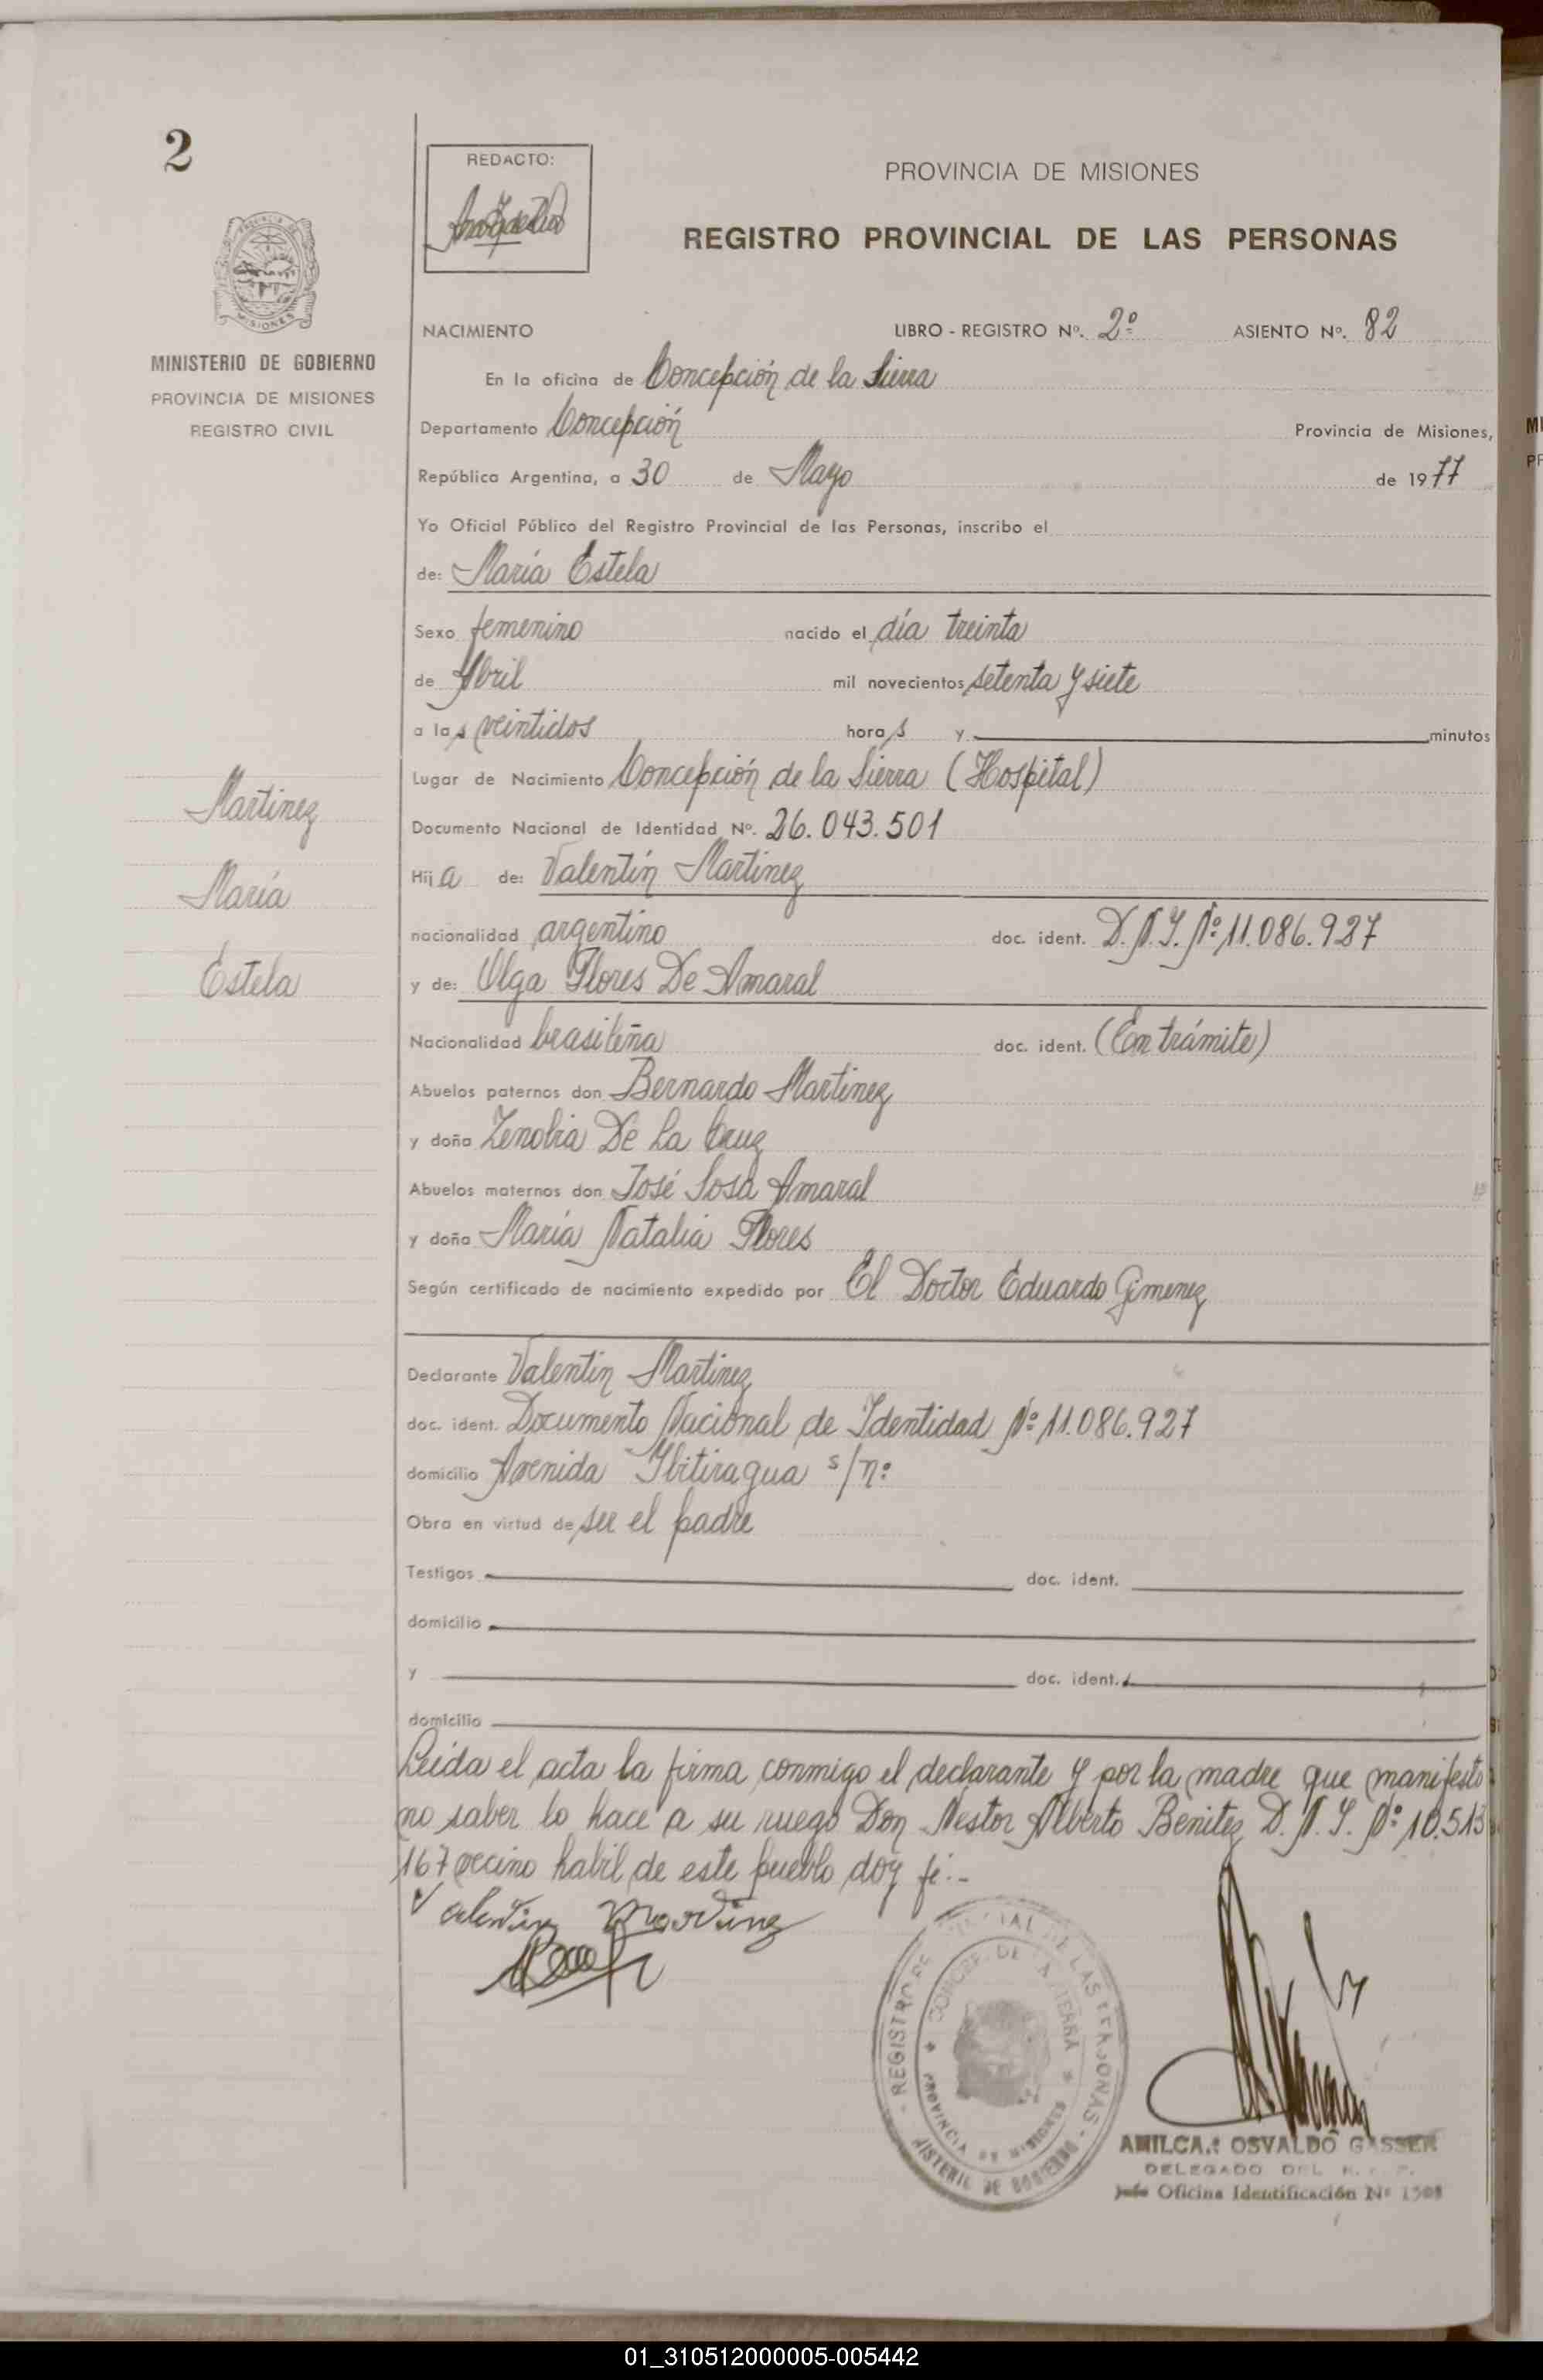 2
REDACTO:
PROVINCIA DE MISIONES
REGISTRO PROVINCIAL DE LAS PERSONAS
MISIONES
MINISTERIO DE GOBIERNO
PROVINCIA DE MISIONES
REGISTRO CIVIL
NACIMIENTO LIBRO - REGISTRO Nº. 2º ASIENTO Nº. 82
En la oficina de Concepción de la Sierra
Departamento Concepción Provincia de Misiones,
República Argentina, a 30 de Mayo de 1977
Yo Oficial Público del Registro Provincial de las Personas, inscribo el
de: María Estela
Sexo femenino nacido el día treinta
de Abril mil novecientos setenta y siete
a las veintidos horas y minutos
Lugar de Nacimiento Concepción de la Sierra (Hospital)
Martinez
María
Estela
Documento Nacional de Identidad Nº. 26.043.501
Hija de: Valentín Martinez
nacionalidad argentino doc. ident. D.N.I. Nº 11.086.927
y de: Olga Flores De Amaral
Nacionalidad brasileña doc. ident. (En trámite)
Abuelos paternos don Bernardo Martinez
y doña Zenobia De La Cruz
Abuelos maternos don José Sosa Amaral
y doña María Natalia Flores
Según certificado de nacimiento expedido por El Doctor Eduardo Gimenez
Declarante Valentin Martinez
doc. ident. Documento Nacional de Identidad Nº 11.086.927
domicilio Avenida Ibitiragua s/nº
Obra en virtud de ser el padre
Testigos doc. ident.
domicilio
y doc. ident.
domicilio
Leída el acta la firma conmigo el declarante y por la madre que manifesto
no saber lo hace a su ruego Don Nestor Alberto Benitez D.N.I. Nº 10.513
167 vecino habil de este pueblo doy fé.-
Valentin Martinez
AMILCAR OSVALDO GASSER
DELEGADO DEL
Jefe Oficina Identificación Nº 1508
01_310512000005-005442